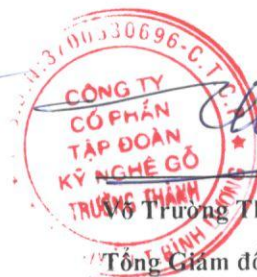 3700530696-C.T.C.P
CÔNG TY
CỔ PHẦN
TẬP ĐOÀN
KỸ NGHỆ GỖ
TRƯỜNG THÀNH
Võ Trường Th
Tổng Giám đố